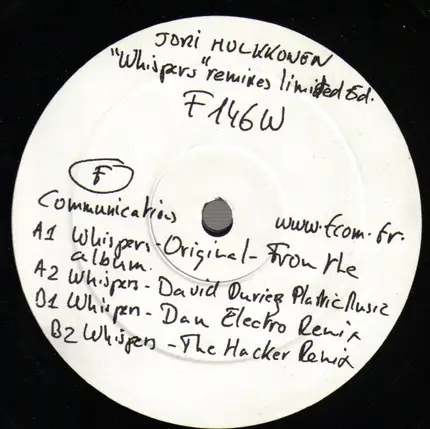 JORI HULKKONEN
"Whispers" remixes limited Ed.
F146W
F
Communications
www.fcom.fr.
A1 Whispers - Original - From the
album.
A2 Whispers - David Duriez Plastic Music
B1 Whispers - Dan Electro Remix
B2 Whispers - The Hacker Remix